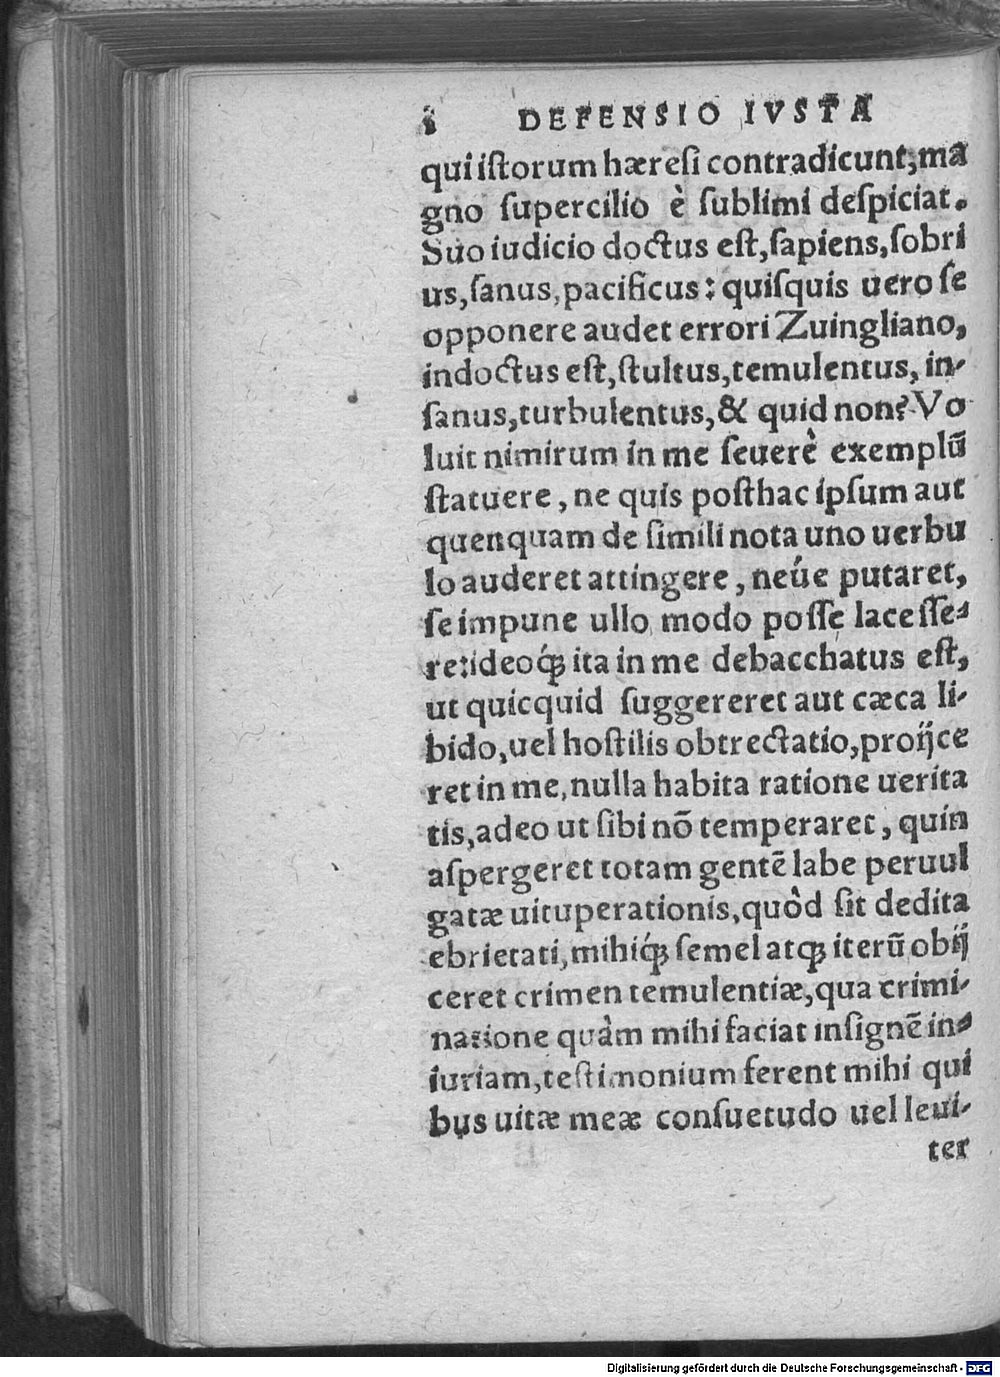 8 DEFENSIO IVSTA
qui iſtorum hæreſi contradicunt, ma
gno ſupercilio è ſublimi deſpiciat.
Suo iudicio doctus eſt, ſapiens, ſobri
us, ſanus, pacificus: quiſquis uero ſe
opponere audet errori Zuingliano,
indoctus eſt, ſtultus, temulentus, in-
ſanus, turbulentus, & quid non? Vo
luit nimirum in me ſeuerè exemplũ
ſtatuere, ne quis poſthac ipſum aut
quenquam de ſimili nota uno uerbu
lo auderet attingere, néue putaret,
ſe impune ullo modo poſſe laceſſe-
re: ideoq́ꝫ ita in me debacchatus eſt,
ut quicquid ſuggereret aut cæca li-
bido, uel hoſtilis obtrectatio, proijce
ret in me, nulla habita ratione uerita
tis, adeo ut ſibi nõ temperaret, quin
aſpergeret totam gentẽ labe peruul
gatæ uituperationis, quòd ſit dedita
ebrietati, mihiq́ꝫ ſemel atqꝫ iterũ obij
ceret crimen temulentiæ, qua crimi-
natione quàm mihi faciat inſignẽ in-
iuriam, teſtimonium ferent mihi qui
bus uitæ meæ conſuetudo uel leui-
ter
Digitalisierung gefördert durch die Deutsche Forschungsgemeinschaft - DFG